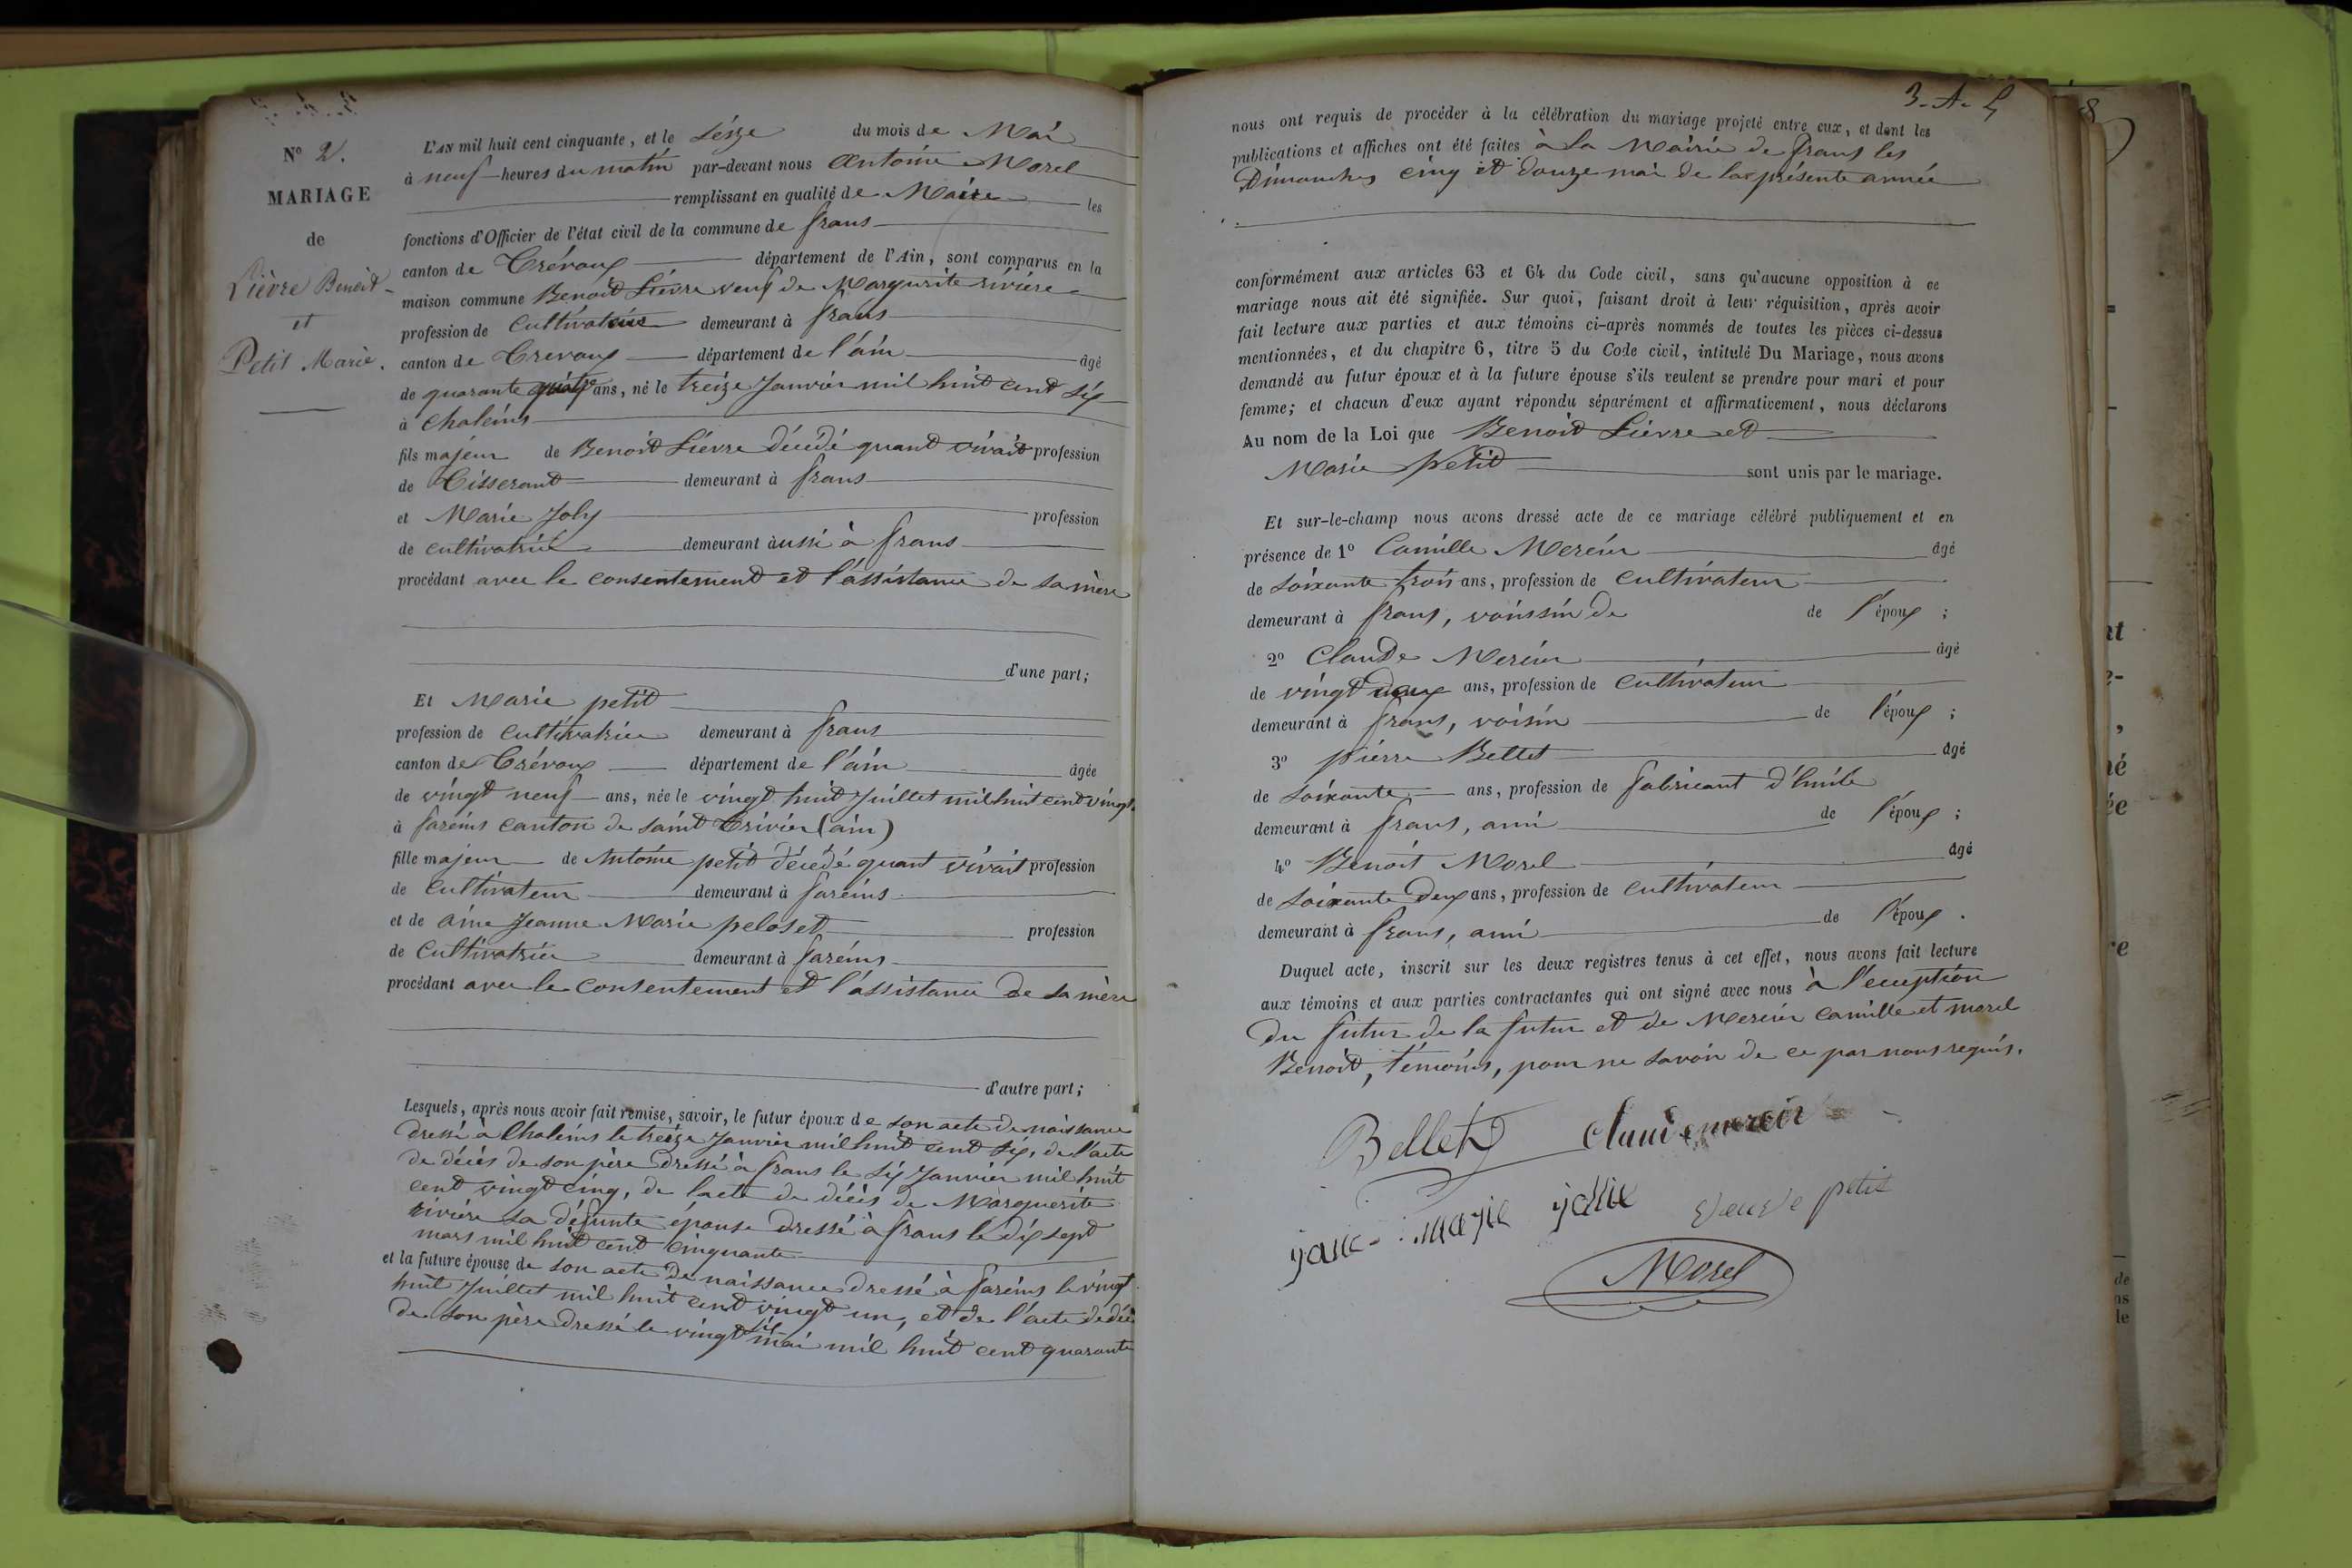 N° 2.
MARIAGE
de
Lièvre Benoit
et
Petit Marie.
L'AN mil huit cent cinquante, et le séize du mois de Mai
à neuf heures du matin par-devant nous Antoine Morel
remplissant en qualité de Maire les
fonctions d'Officier de l'état civil de la commune de frans
canton de Trévoux département de l'Ain, sont comparus en la
maison commune Benoit Lièvre veuf de Margurite rivière
profession de Cultivateur demeurant à frans
canton de Trevoux département de l'ain âgé
de quarante quatre ans, né le treize Janvier mil huit cent six
à Chaleins
fils majeur de Benoit Lièvre décédé quant vivait profession
de Tisserant demeurant à frans
et Marie Joly profession
de cultivatrice demeurant aussi à frans
procédant avec le consentement et l'assistance de sa mère
d'une part;
Et Marie petit
profession de cultivatrice demeurant à frans
canton de Trévoux département de l'ain âgée
de vingt neuf ans, née le vingt huit Juillet mil huit cent vingt
à fareins canton de saint Trivier (ain)
fille majeur de Antoine petit décédé quant vivait profession
de Cultivateur demeurant à fareins
et de Jeanne Marie peloset profession
de Cultivatrice demeurant à fareins
procédant avec le consentement et l'assistance de sa mère
d'autre part;
Lesquels, après nous avoir fait remise, savoir, le futur époux de son acte de naissance
dressé à Chaleins le treize Janvier mil huit cent six, de l'acte
de décès de son père dressé à frans le six Janvier mil huit
cent vingt cinq, de lacte de décès de Marguerite
rivière sa défunte épouse dressé à frans le dix sept
mars mil huit cent cinquante
et la future épouse de son acte de naissance dressé à fareins le vingt
huit Juillet mil huit cent vingt un, et de l'acte de décè
de son père dressé le vingt six mai mil huit cent quarante
3. A. L
8
nous ont requis de procéder à la célébration du mariage projeté entre eux, et dont les
publications et affiches ont été faites à la Mairie de frans les
Dimanches cinq et douze mai de la présente année
conformément aux articles 63 et 64 du Code civil, sans qu'aucune opposition à ce
mariage nous ait été signifiée. Sur quoi, faisant droit à leur réquisition, après avoir
fait lecture aux parties et aux témoins ci-après nommés de toutes les pièces ci-dessus
mentionnées, et du chapitre 6, titre 5 du Code civil, intitulé Du Mariage, nous avons
demandé au futur époux et à la future épouse s'ils veulent se prendre pour mari et pour
femme; et chacun d'eux ayant répondu séparément et affirmativement, nous déclarons
Au nom de la Loi que Benoit Lièvre et
Marie Petit sont unis par le mariage.
Et sur-le-champ nous avons dressé acte de ce mariage célébré publiquement et en
présence de 1° Camille Mercier âgé
de soixante trois ans, profession de cultivateur
demeurant à frans, voissin de de l'époux ;
2° Claude Mercier âgé
de vingt deux ans, profession de cultivateur
demeurant à frans, voisin de l'époux ;
3° pierre Bellet âgé
de soixante ans, profession de fabricant d'huile
demeurant à frans, ami de l'époux ;
4° Benoit Morel âgé
de soixante deux ans, profession de cultivateur
demeurant à frans, ami de l'époux .
Duquel acte, inscrit sur les deux registres tenus à cet effet, nous avons fait lecture
aux témoins et aux parties contractantes qui ont signé avec nous à l'éxception
du futur de la futur et de Mercier camille et morel
Benoit, témoins, pour ne savoir de ce par nous requis.
Bellet Claude mercier
Marie veuve petit
Morel